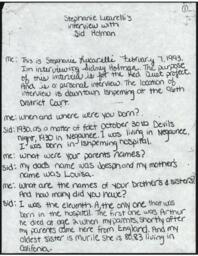 Stephanie Lucarelli's
interview with
Sid Holman
me: This is Stephanie Lucarelli February 7, 1993.
I'm interviewing Sidney Holman. The purpose
of this interview is for the Red Dust project.
And is a personal interview. The location of
interview is downtown Ishpeming at the 96th
District Court.
me: when and where were you born?
Sid: 1930, as a matter of fact October 30 so Devils
night, 1930 in Negaunee. I was living in Negaunee,
I was born in Ishpeming hospital.
me: what were your parents names?
Sid: my dads name was Joseph and my mother's
name was Louisa.
me: what are the names of your brother's & sisters?
And how many did you have?
Sid: I was the eleventh, the only one that was
born in the hospital. The first one was Arthur
he died at age when my parents, shortly after
my parents came here from England. And my
oldest sister is she is 82,83 living in